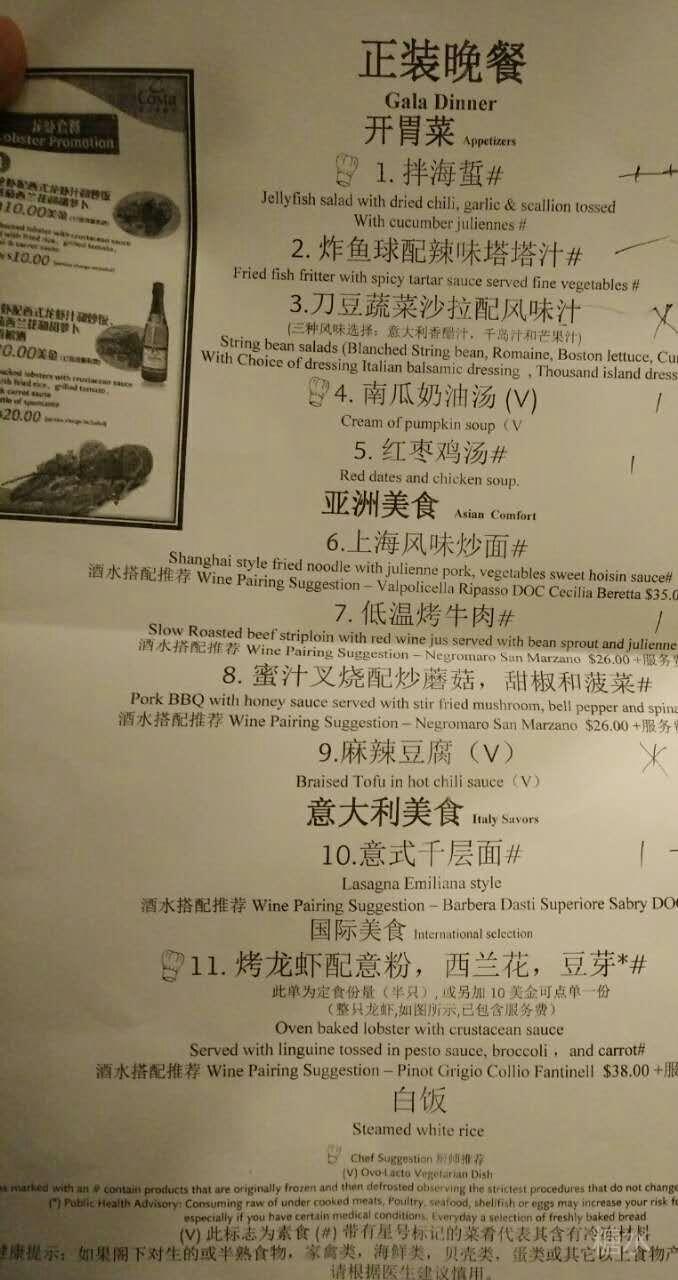 正装晚餐
Gala Dinner
开胃菜 Appetizers
1. 拌海蜇#
Jellyfish salad with dried chili, garlic & scallion tossed
With cucumber juliennes #
2. 炸鱼球配辣味塔塔汁#
Fried fish fritter with spicy tartar sauce served fine vegetables #
3.刀豆蔬菜沙拉配风味汁
(三种风味选择：意大利香醋汁，千岛汁和芒果汁)
String bean salads (Blanched String bean, Romaine, Boston lettuce,
With Choice of dressing Italian balsamic dressing , Thousand island
4. 南瓜奶油汤 (V)
Cream of pumpkin soup（V
5. 红枣鸡汤#
Red dates and chicken soup.
亚洲美食 Asian Comfort
6.上海风味炒面#
Shanghai style fried noodle with julienne pork, vegetables sweet hoisin sauce#
酒水搭配推荐 Wine Pairing Suggestion – Valpolicella Ripasso DOC Cecilia Beretta $35.0
7. 低温烤牛肉#
Slow Roasted beef striploin with red wine jus served with bean sprout and julienne
酒水搭配推荐 Wine Pairing Suggestion – Negromaro San Marzano $26.00 +服务
8. 蜜汁叉烧配炒蘑菇，甜椒和菠菜#
Pork BBQ with honey sauce served with stir fried mushroom, bell pepper and
酒水搭配推荐 Wine Pairing Suggestion – Negromaro San Marzano $26.00 +服务
9.麻辣豆腐（V）
Braised Tofu in hot chili sauce（V）
意大利美食 Italy Savors
10.意式千层面#
Lasagna Emiliana style
酒水搭配推荐 Wine Pairing Suggestion – Barbera Dasti Superiore Sabry
国际美食 International selection
11. 烤龙虾配意粉，西兰花，豆芽*#
此单为定食份量（半只）, 或另加 10 美金可点单一份
（整只龙虾,如图所示,已包含服务费）
Oven baked lobster with crustacean sauce
Served with linguine tossed in pesto sauce, broccoli ，and carrot#
酒水搭配推荐 Wine Pairing Suggestion – Pinot Grigio Collio Fantinell $38.00 +
白饭
Steamed white rice
Chef Suggestion 厨师推荐
(V) Ovo-Lacto Vegetarian Dish
marked with an # contain products that are originally frozen and then defrosted observing the strictest procedures that do not change
(*) Public Health Advisory: Consuming raw of under cooked meats, Poultry, seafood, shellfish or eggs may increase your risk
especially if you have certain medical conditions. Everyday a selection of freshly baked bread
(V) 此标志为素食 (#) 带有星号标记的菜肴代表其含有冷冻材料
健康提示：如果阁下对生的或半熟食物，家禽类，海鲜类，贝壳类，蛋类或其它以上食物
请根据医生建议慎用。
Costa
龙虾套餐
Lobster Promotion
10.00美金
10.00
with fried rice, grilled tomato,
20.00